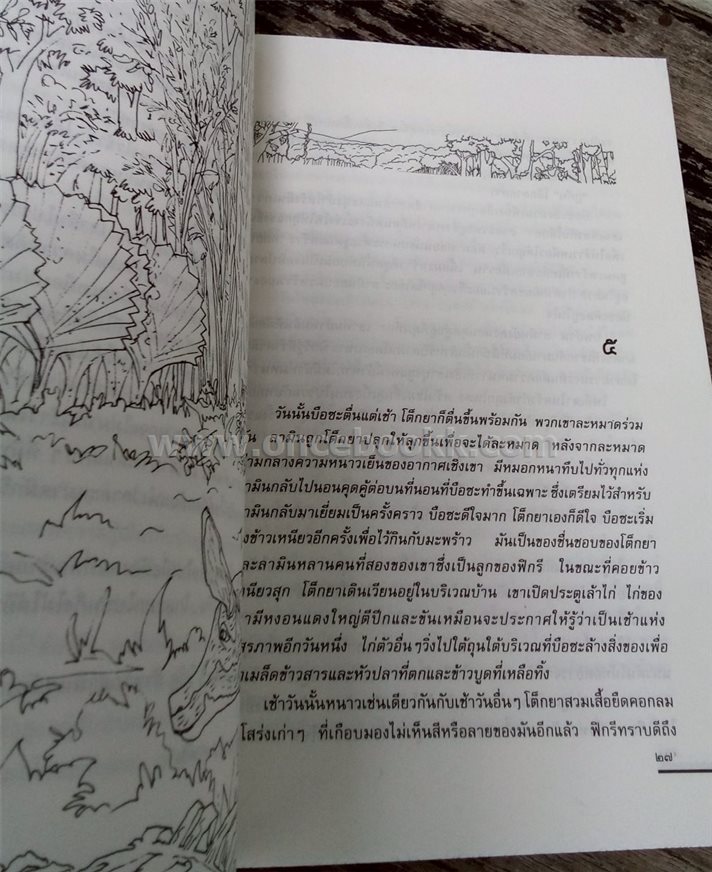 ๕
วันนั้นบือซะตื่นแต่เช้า โต็กยาก็ตื่นขึ้นพร้อมกัน พวกเขาละหมาดร่วม
ลามินถูกโต็กยาปลุกให้ลุกขึ้นเพื่อจะได้ละหมาด หลังจากละหมาด
กลางความหนาวเย็นของอากาศเชิงเขา มีหมอกหนาทึบไปทั่วทุกแห่ง
กลับไปนอนคุดคู้ต่อบนที่นอนที่บือซะทำขึ้นเฉพาะ ซึ่งเตรียมไว้สำหรับ
กลับมาเยี่ยมเป็นครั้งคราว บือซะดีใจมาก โต็กยาเองก็ดีใจ บือซะเริ่ม
ข้าวเหนียวอีกครั้งเพื่อไว้กินกับมะพร้าว มันเป็นของชื่นชอบของโต็กยา
ลามินหลานคนที่สองของเขาซึ่งเป็นลูกของฟิกรี ในขณะที่คอยข้าว
สุก โต็กยาเดินเวียนอยู่ในบริเวณบ้าน เขาเปิดประตูเล้าไก่ ไก่ของ
มีหงอนแดงใหญ่ตีปีกและขันเหมือนจะประกาศให้รู้ว่าเป็นเช้าแห่ง
อีกวันหนึ่ง ไก่ตัวอื่นๆวิ่งไปใต้ถุนใต้บริเวณที่บือซะล้างสิ่งของเพื่อ
เมล็ดข้าวสารและหัวปลาที่ตกและข้าวบูดที่เหลือทิ้ง
เช้าวันนั้นหนาวเช่นเดียวกันกับเช้าวันอื่นๆ โต็กยาสวมเสื้อยืดคอกลม
โสร่งเก่าๆ ที่เกือบมองไม่เห็นสีหรือลายของมันอีกแล้ว ฟิกรีทราบดีถึง
๒๗
www.oncebookk.com